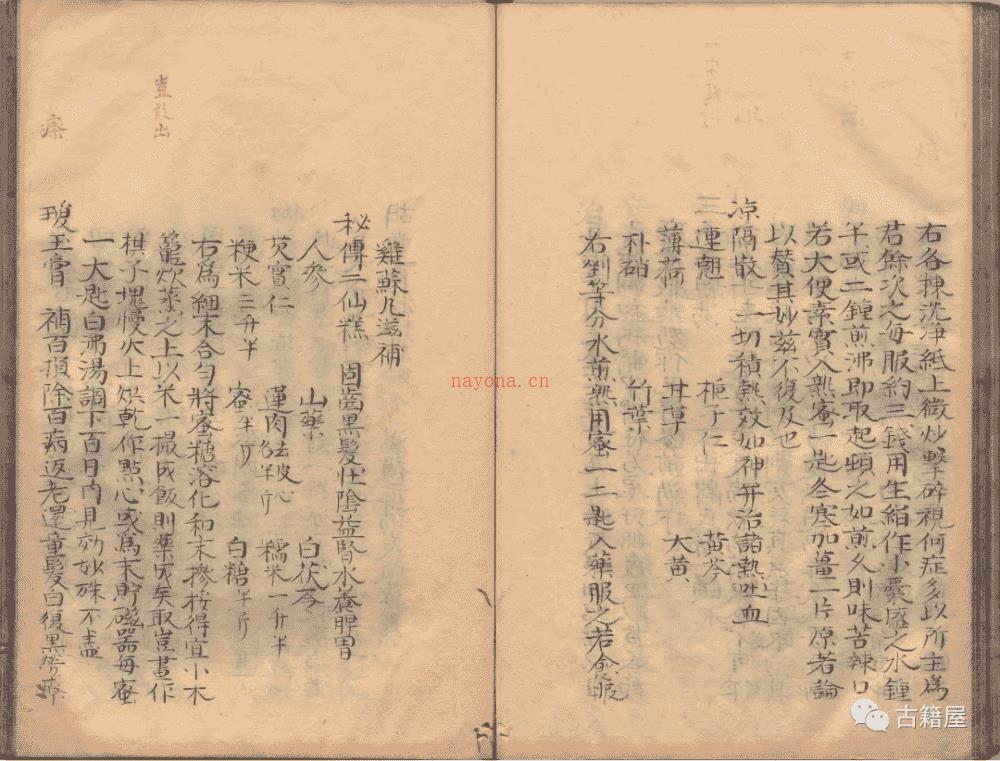 右各揀洗淨紙上微炒擊碎視何症多以所主為
君餘次之每服約三錢用生絹作小囊盛之水鍾
半或二鍾煎沸即取起頓之如煎久則味苦辣口
若大便素實入熟蜜一匙冬寒加薑二片原若論
以贊其妙茲不復及也
凉隔散 一切積熱效如神并治諸熱吐血
三連翹 梔子仁 黄芩
薄荷 甘草 大黄
朴硝 竹葉
右剉等分水煎熟用蜜一二匙入藥服之若愈
雞蘇丸滋補
秘傳二仙糕 固齒黑髮壯陰益腎水養脾胃
人參 山藥 白茯苓
芡實仁 蓮肉去皮心各半斤 糯米一升半
粳米三升半 蜜半斤 白糖半斤
右為細末合勻將蜜糖溶化和末摻按得宜小木
籠炊蒸之上以米一撮成飯則藥成矣取豈畫作
棋子塊慢火上烘乾作點心或為末貯磁器每蜜
一大匙白沸湯調下百日內見効妙殊不盡
瓊玉膏 補百損除百病返老還童髮白復黑勞瘵
豈
出
瘵
nayona.cn
古籍屋